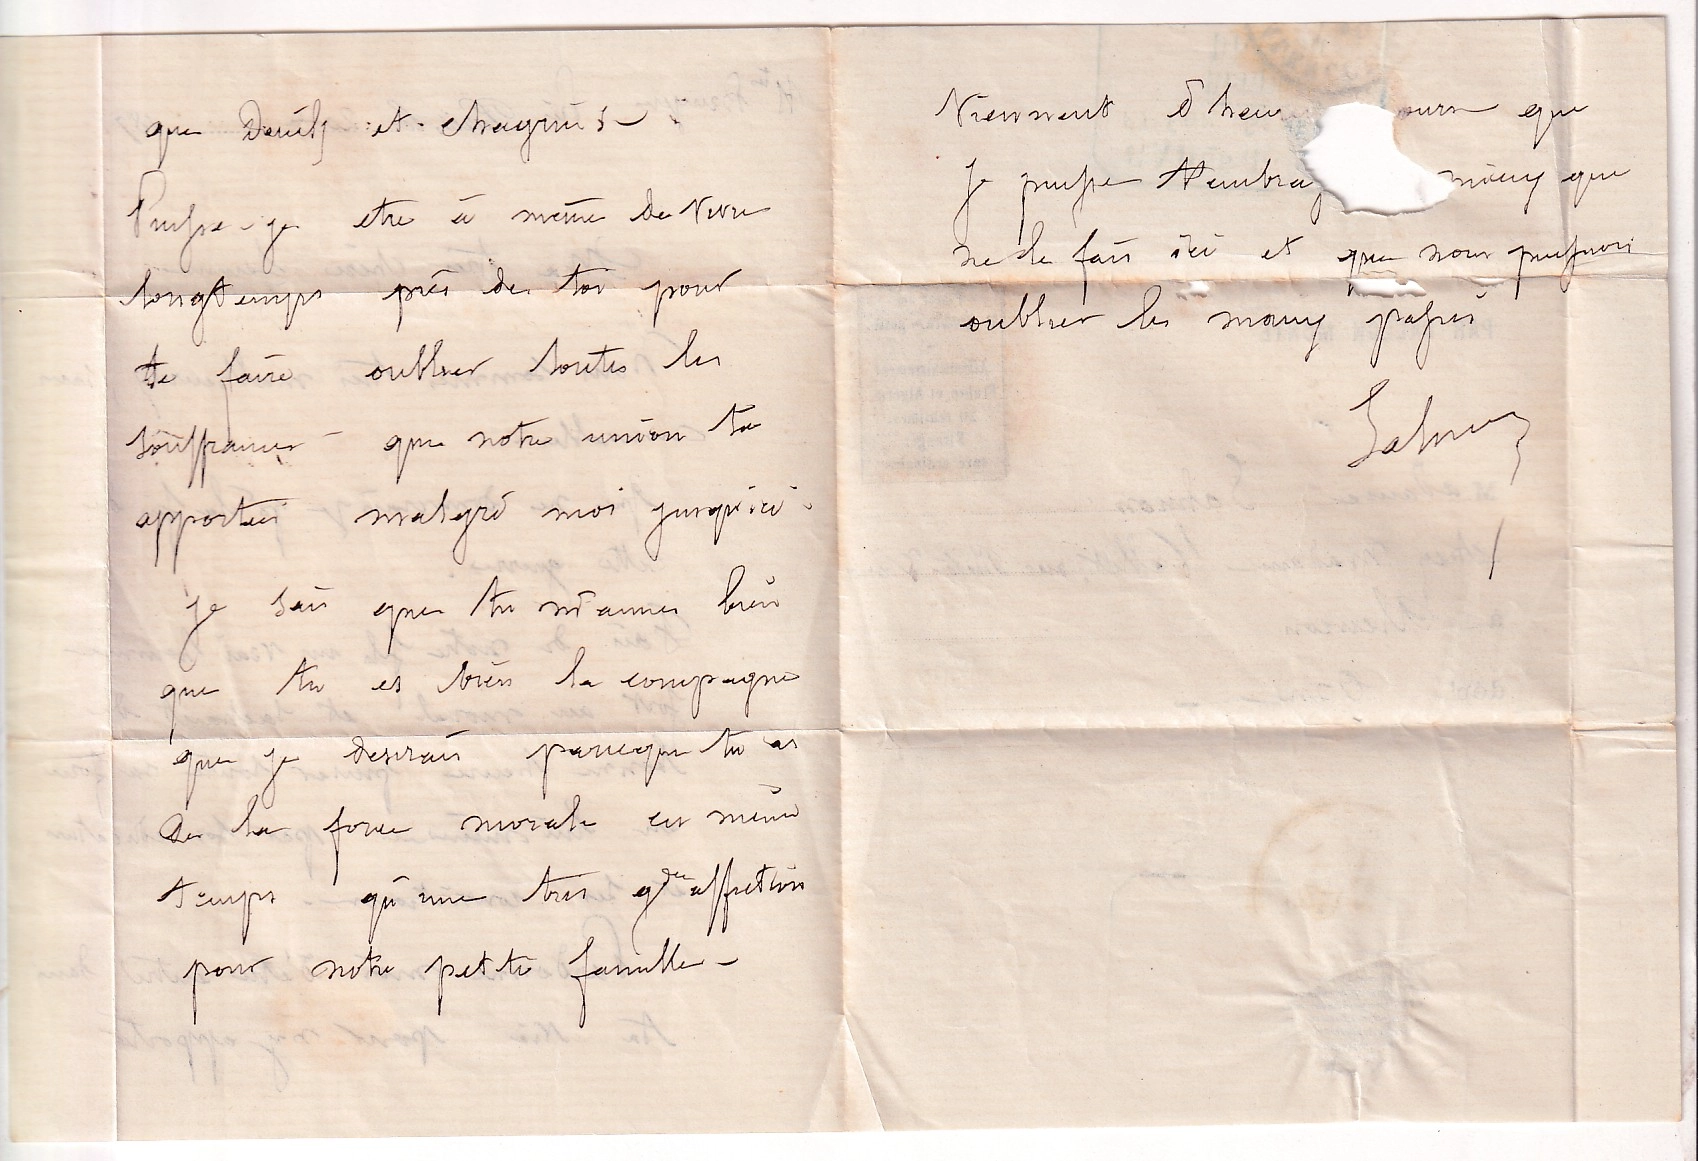 que deuils et chagrins –
Puisse-je etre à même de vivre
longtemps près de toi pour
te faire oublier toutes les
souffrances que notre union t'a
apporteés malgré moi jusqu'ici.
Je sais que tu m'aimes bien
que tu es bien la compagne
que je desirais parceque tu as
de la force morale en même
temps qu'une très gde affection
pour notre petite famille –
Viennent d'heu ours que
Je puisse t'embra mieux que
ne le fais ici et que nous puissions
oublier les maux passés